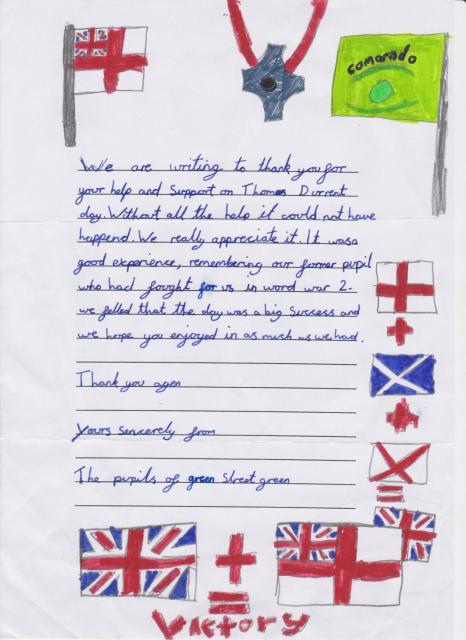 comorado
We are writing to thank you for
your help and Support on Thomas Durrent
day. Without all the help it could not have
happend. We really appreciate it. It was a
good experience, remembering our former pupil
who had fought for us in word war 2.
we felled that the day was a big Success and
we hope you enjoyed in as much as we had.
Thank you agen
Yours sencerely from
The pupils of green Street green
Victory